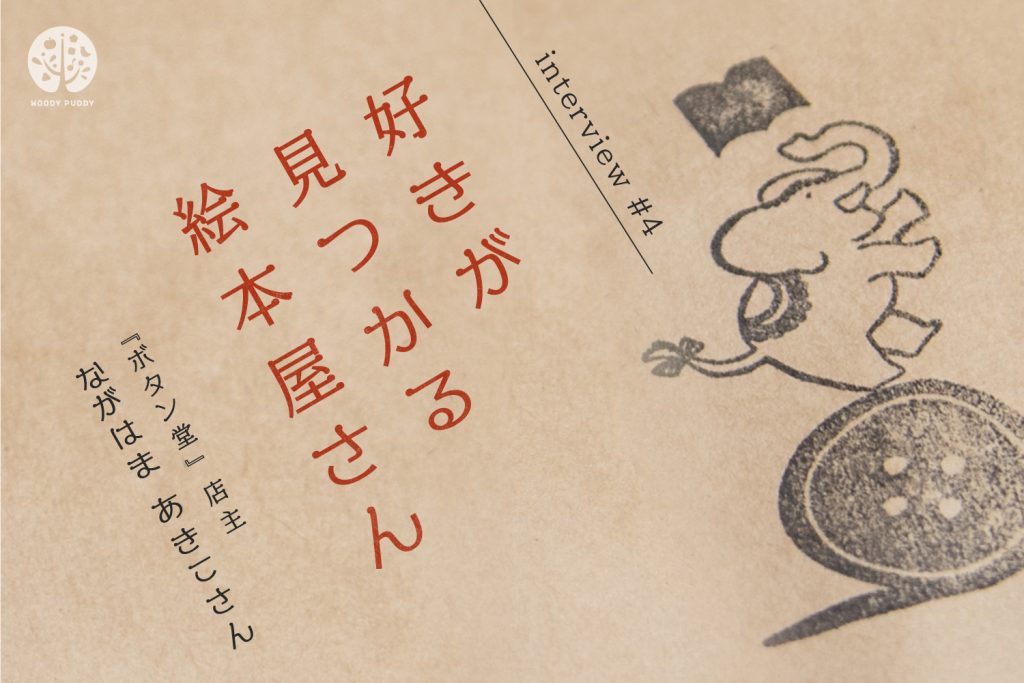 WOODY PUDDY
interview #4
好きが
見つかる
絵本屋さん
『ボタン堂』店主
ながはま あきこさん